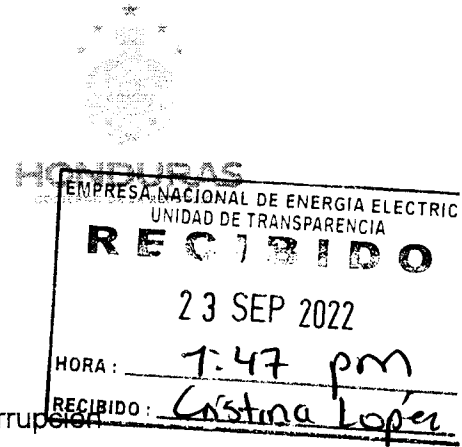 HONDURAS
EMPRESA NACIONAL DE ENERGIA ELECTRIC
UNIDAD DE TRANSPARENCIA
RECIBIDO
23 SEP 2022
HORA: 1:47 pm
rrupción
RECIBIDO: Cristina Lopez